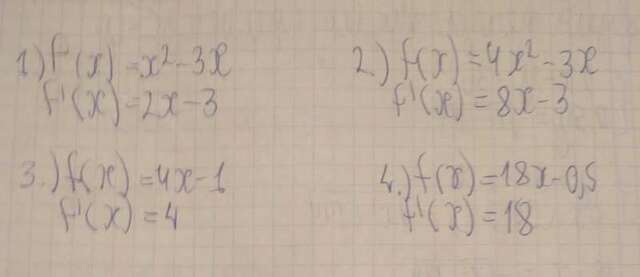 1) f'(x) = x² - 3x
f'(x) = 2x - 3
2.) f(x) = 4x² - 3x
f'(x) = 8x - 3
3.) f(x) = 4x - 1
f'(x) = 4
4.) f(x) = 18x - 0,5
f'(x) = 18